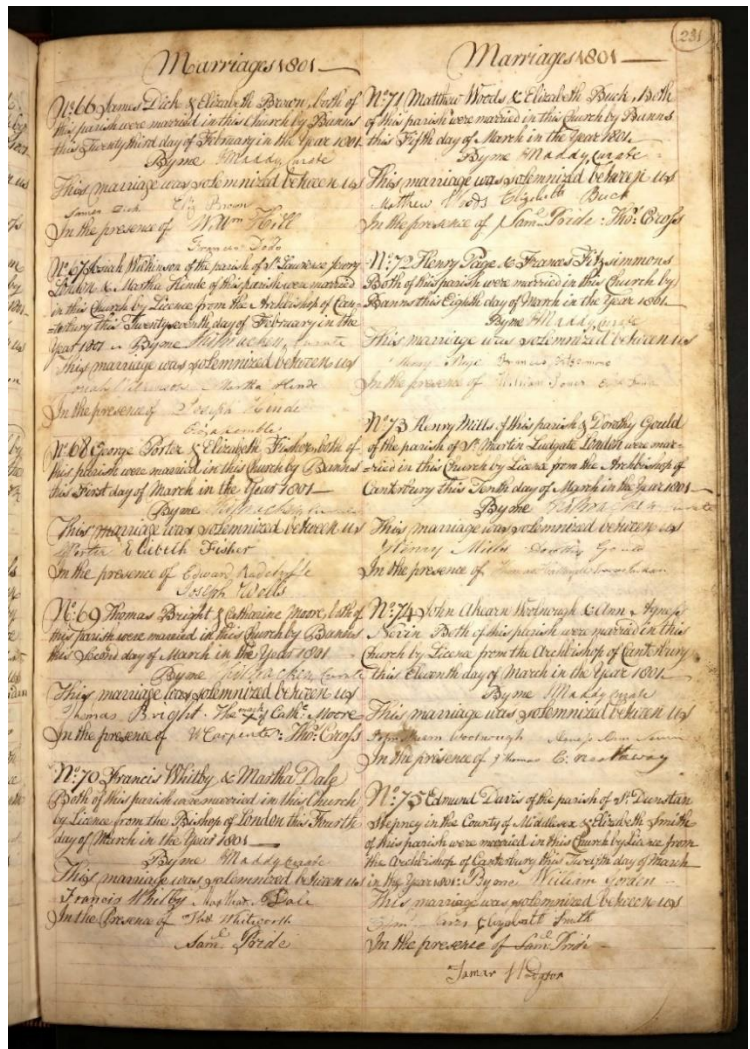 231
Marriages 1801
No. 66 James Dick & Elizabeth Brown, both of
this parish were married in this Church by Banns
this Twenty third day of February in the Year 1801
By me Maddy Curate
This marriage was solemnized between us
James Dick Eliz Brown
In the presence of Willm Hill
Frances Dodo
No. 67 Josiah Wilkinson of the parish of St. Laurence Jewry
London & Martha Hinde of this parish were married
in this Church by Licence from the Archbishop of Can-
terbury this Twenty seventh day of February in the
Year 1801 By me Curate
This marriage was solemnized between us
Martha Hinde
In the presence of Joseph Hinde
No. 68 George Porter & Elizabeth Fisher, both of
this parish were married in this Church by Banns
this First day of March in the Year 1801
By me
This marriage was solemnized between us
Porter Elizabeth Fisher
In the presence of Edward Radclyffe
Joseph Wells
No. 69 Thomas Bright & Catharine Moore, both of
this parish were married in this Church by Banns
this Second day of March in the Year 1801
By me Curate
This marriage was solemnized between us
Thomas Bright. The mark X of Cathe. Moore
In the presence of W Carpenter: Thos. Cross
No. 70 Francis Whitby & Martha Dale
Both of this parish were married in this Church
by Licence from the Bishop of London this Fourth
day of March in the Year 1801
By me Maddy Curate
This marriage was solemnized between us
Francis Whitby Martha Dale
In the Presence of Whitworth
Saml. Pride
Marriages 1801
No. 71 Matthew Woods & Elizabeth Buck, Both
of this parish were married in this Church by Banns
this Fifth day of March in the Year 1801.
By me Maddy Curate
This marriage was solemnized between us
Matthew Woods Elizabeth Buck
In the presence of Saml. Pride: Thos. Cross
No. 72 Henry Page & Frances Fitzsimmons
Both of this parish were married in this Church by
Banns this Eighth day of March in the Year 1801
By me Maddy Curate
This marriage was solemnized between us
Henry Page Frances
In the presence of William
No. 73 Henry Mills of this parish & Dorothy Gould
of the parish of St. Martin Ludgate London were mar-
ried in this Church by Licence from the Archbishop of
Canterbury this Tenth day of March in the Year 1801
By me Curate
This marriage was solemnized between us
Henry Mills Dorothy Gould
In the presence of Thomas
No. 74 John Ahearn Woolnough & Ann Agness
Nevin Both of this parish were married in this
Church by Licence from the Archbishop of Canterbury
this Eleventh day of March in the Year 1801
By me Maddy Curate
This marriage was solemnized between us
John Ahearn Woolnough Agness Ann
In the presence of Thomas C. Northaway
No. 75 Edmund Davis of the parish of St. Dunstan
Stepney in the County of Middlesex & Elizabeth Smith
of this parish were married in this Church by Licence from
the Archbishop of Canterbury this Twelfth day of March
in the Year 1801: By me William Gorden
This marriage was solemnized between us
Davis Elizabeth Smith
In the presence of Saml. Pride